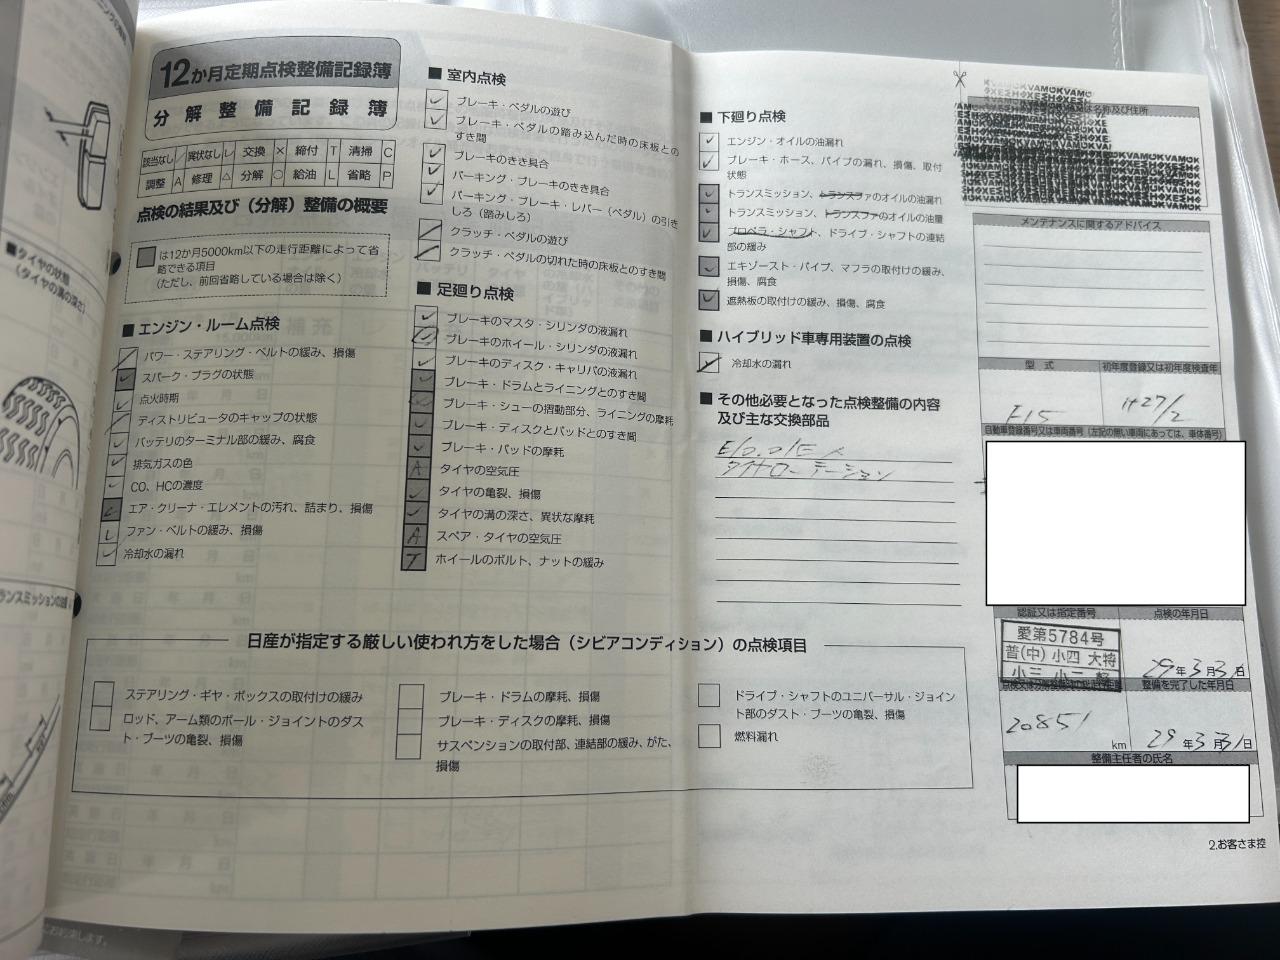 12か月定期点検整備記録簿
分解整備記録簿
該当なし ／ 異状なし レ 交換 × 締付 T 清掃 C
調整 A 修理 △ 分解 ○ 給油 L 省略 P
点検の結果及び（分解）整備の概要
は12か月5000km以下の走行距離によって省
略できる項目
（ただし、前回省略している場合は除く）
■エンジン・ルーム点検
パワー・ステアリング・ベルトの緩み、損傷
スパーク・プラグの状態
点火時期
ディストリビュータのキャップの状態
バッテリのターミナル部の緩み、腐食
排気ガスの色
CO、HCの濃度
エア・クリーナ・エレメントの汚れ、詰まり、損傷
ファン・ベルトの緩み、損傷
冷却水の漏れ
■室内点検
ブレーキ・ペダルの遊び
ブレーキ・ペダルの踏み込んだ時の床板との
すき間
ブレーキのきき具合
パーキング・ブレーキのきき具合
パーキング・ブレーキ・レバー（ペダル）の引き
しろ（踏みしろ）
クラッチ・ペダルの遊び
クラッチ・ペダルの切れた時の床板とのすき間
■足廻り点検
ブレーキのマスタ・シリンダの液漏れ
ブレーキのホイール・シリンダの液漏れ
ブレーキのディスク・キャリパの液漏れ
ブレーキ・ドラムとライニングとのすき間
ブレーキ・シューの摺動部分、ライニングの摩耗
ブレーキ・ディスクとパッドとのすき間
ブレーキ・パッドの摩耗
A タイヤの空気圧
タイヤの亀裂、損傷
タイヤの溝の深さ、異状な摩耗
A スペア・タイヤの空気圧
T ホイールのボルト、ナットの緩み
■下廻り点検
エンジン・オイルの油漏れ
ブレーキ・ホース、パイプの漏れ、損傷、取付
状態
トランスミッション、トランスファのオイルの油漏れ
トランスミッション、トランスファのオイルの油量
プロペラ・シャフト、ドライブ・シャフトの連結
部の緩み
エキゾースト・パイプ、マフラの取付けの緩み、
損傷、腐食
遮熱板の取付けの緩み、損傷、腐食
■ハイブリッド車専用装置の点検
冷却水の漏れ
■その他必要となった点検整備の内容
及び主な交換部品
タイヤローテーション
日産が指定する厳しい使われ方をした場合（シビアコンディション）の点検項目
ステアリング・ギヤ・ボックスの取付けの緩み
ロッド、アーム類のボール・ジョイントのダス
ト・ブーツの亀裂、損傷
ブレーキ・ドラムの摩耗、損傷
ブレーキ・ディスクの摩耗、損傷
サスペンションの取付部、連結部の緩み、がた、
損傷
ドライブ・シャフトのユニバーサル・ジョイン
ト部のダスト・ブーツの亀裂、損傷
燃料漏れ
名称及び住所
メンテナンスに関するアドバイス
型式 初年度登録又は初年度検査年
E15 H27/2
自動車登録番号又は車両番号（左記の無い車両にあっては、車体番号）
認証又は指定番号 点検の年月日
愛第5784号
普(中) 小四 大特
小三 小二 軽
29年3月31日
整備を完了した年月日
20851 km 29年3月31日
整備主任者の氏名
2.お客さま控
■タイヤの状態
（タイヤの溝の深さ）